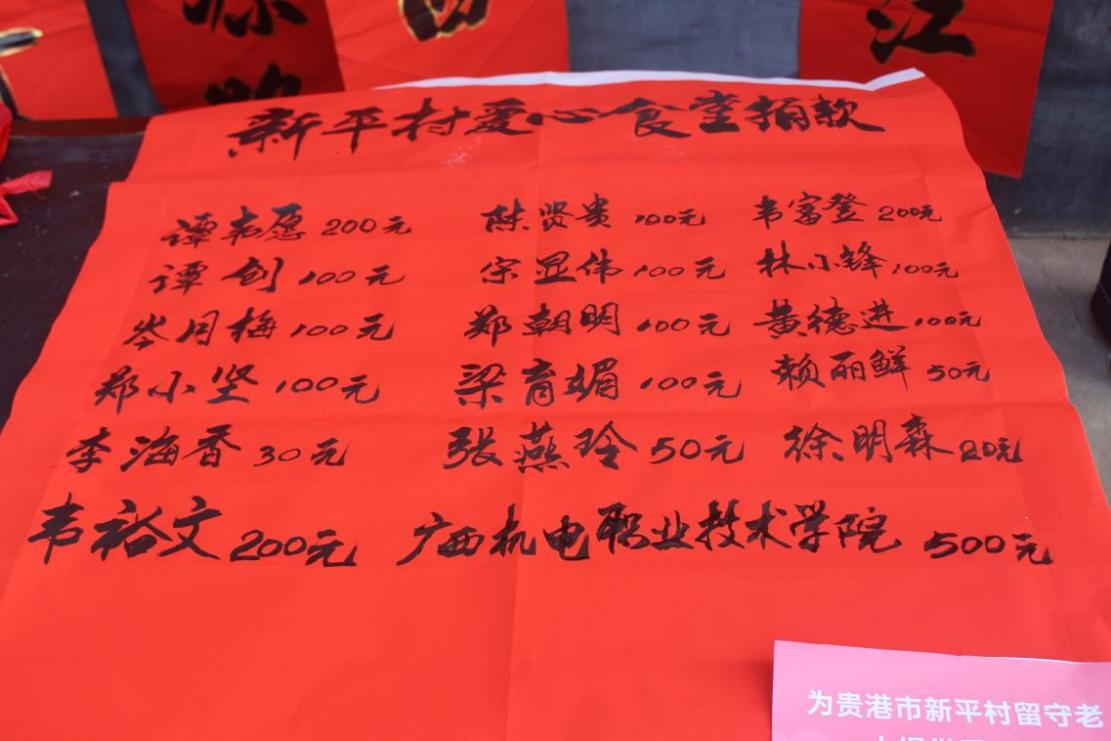 江
新平村爱心食堂捐款
谭韦愿 200元 陈贤贵 100元 韦富登 200元
谭创 100元 宗显伟 100元 林小锋 100元
岑月梅 100元 郑朝明 100元 黄德进 100元
郑小坚 100元 梁育媚 100元 赖丽鲜 50元
李海香 30元 张燕玲 50元 徐明森 20元
韦裕文 200元 广西机电职业技术学院 500元
为贵港市新平村留守老